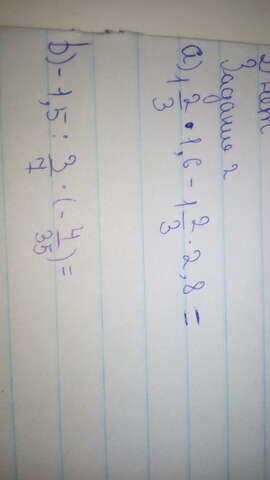 Задание 2
a) 1 2/3 · 1,6 - 1 2/3 · 2,8 =
b) -1,5 : 3/7 · (- 4/35) =